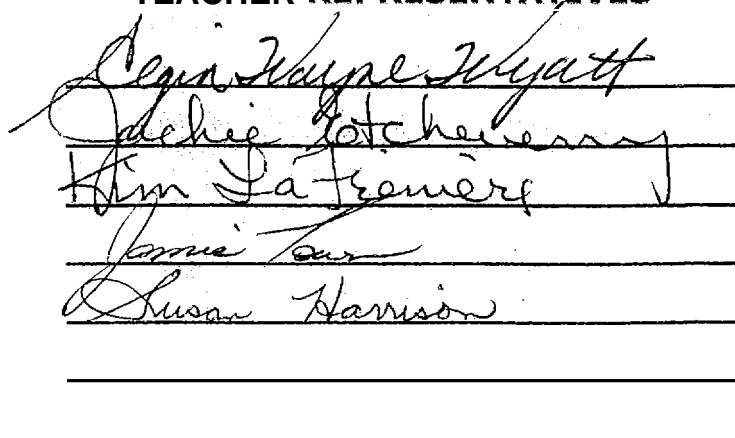 TEACHER REPRESENTATIVES
Wayne Wyatt
Jackie Etcheverry
Kim LaFrenière
Jamie
Susan Harrison